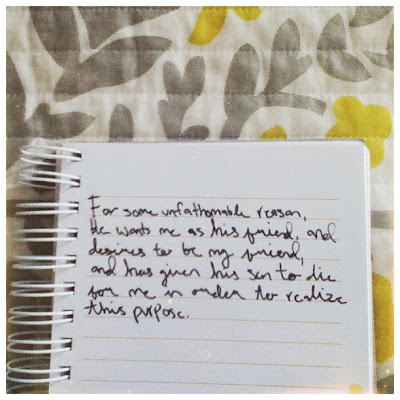 For some unfathomable reason,
He wants me as his friend, and
desires to be my friend,
and has given his son to die
for me in order to realize
this purpose.